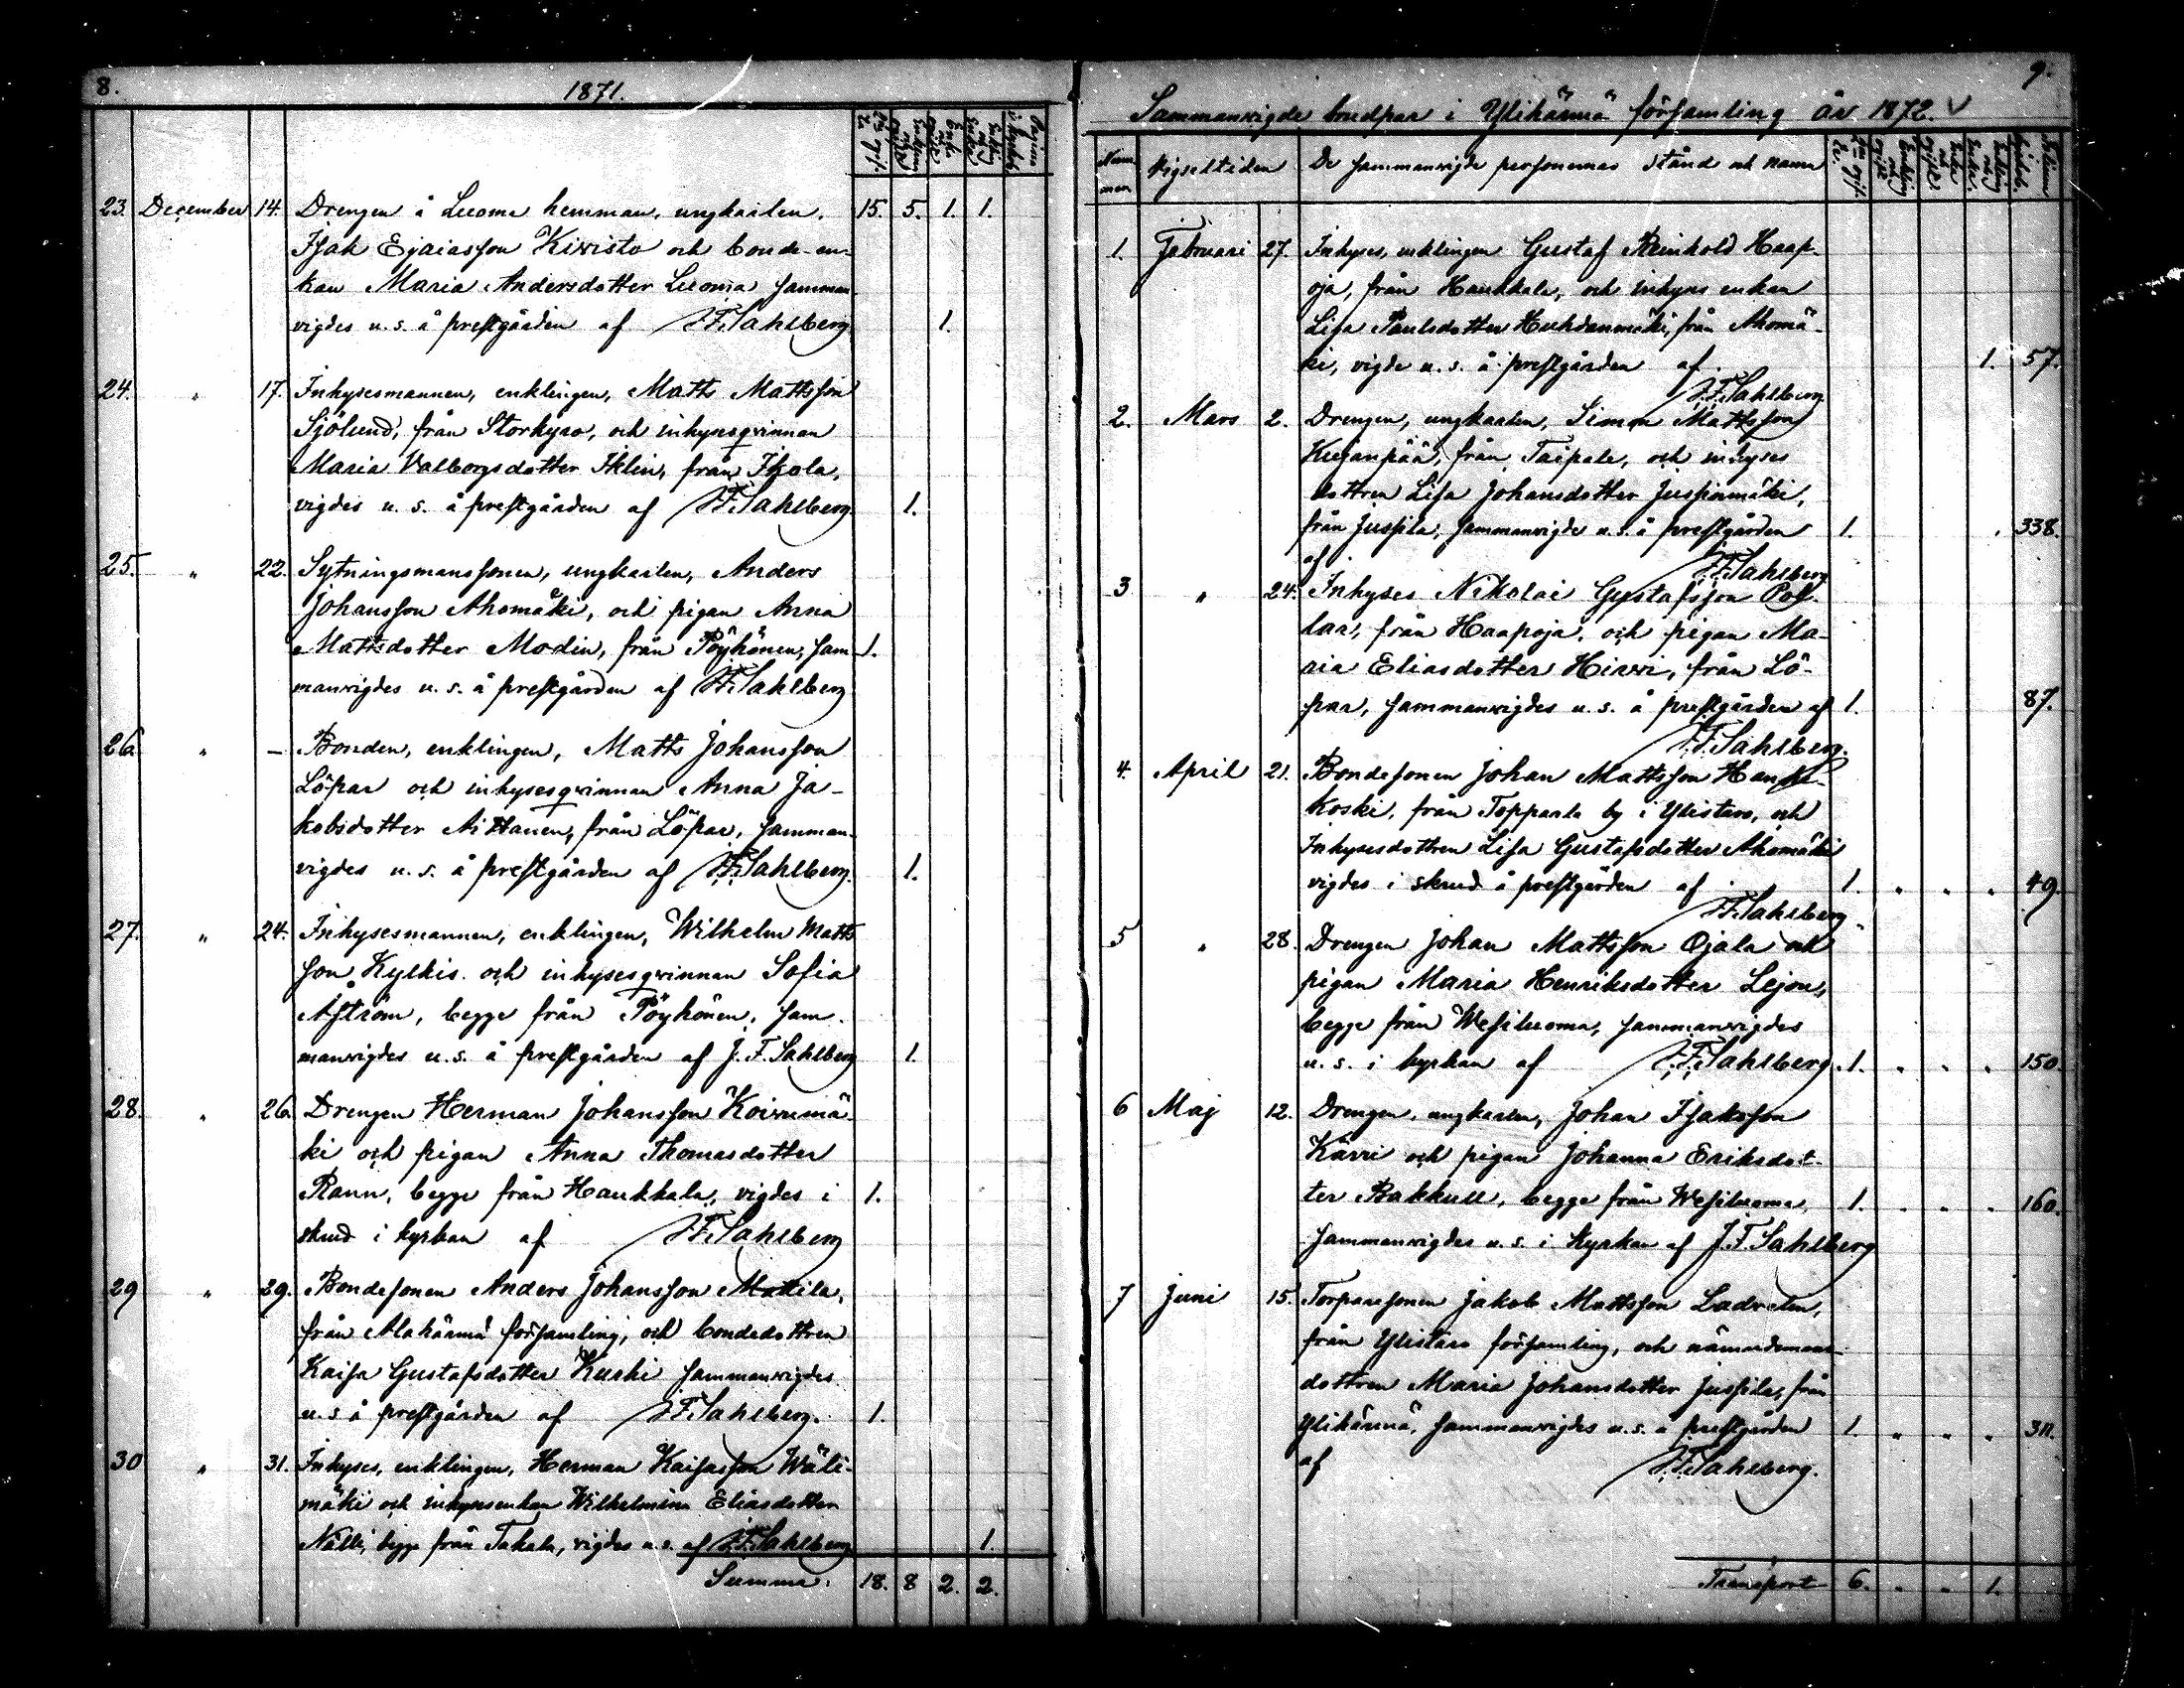 8.
1871.
23. December 14. Drengen å Luoma hemman, ungkarlen, 15. 5. 1. 1.
Isak Esaiasson Kivisto och bonde-en-
kan Maria Andersdotter Luoma samman-
vigdes u. s. å prestgården af J.F. Sahlberg 1.
24. " 17. Inhysesmannen, enklingen, Matts Mattsson
Sjölund, från Storkyro, och inhysesqvinnan
Maria Valborgsdotter Iklin, från Ikola,
vigdes u. s. å prestgården af J.F. Sahlberg 1.
25. " 22. Sytningsmanssonen, ungkarlen, Anders
Johansson Ahomäki, och pigan Anna
Mattsdotter Modin, från Pöyhönen, sam- 1.
manvigdes u. s. å prestgården af J.F. Sahlberg
26. " – Bonden, enklingen, Matts Johansson
Löpar och inhysesqvinnan Anna Ja-
kobsdotter från Löpar, samman-
vigdes u. s. å prestgården af J.F. Sahlberg. 1.
27. " 24. Inhysesmannen, enklingen, Wilhelm Matts
son Kylkis och inhysesqvinnan Sofia
Åström, begge från Pöyhönen, sam-
manvigdes u. s. å prestgården af J.F. Sahlberg 1.
28. " 26. Drengen Herman Johansson Koivumä-
ki och pigan Anna Thomasdotter
Rann, begge från Haukkala, vigdes i 1.
skrud i kyrkan af J.F. Sahlberg
29 " 29. Bondesonen Anders Johansson Mattila,
från Alahärmä församling, och bondedottren
Kaisa Gustafsdotter Kuski sammanvigdes
u. s å prestgården af J.F. Sahlberg. 1.
30 " 31. Inhyses, enklingen, Herman Kaisasson Wäli-
mäki och inhysesenkan Wilhelmina Eliasdotter
Nälli, begge från Takala, vigdes u. s. af J.F. Sahlberg 1.
Summa: 18. 8 2. 2.
9.
Sammanvigde brudpar i Ylihärmä församling år 1872.
Num-
mer Vigseltiden De sammanvigde personernas stånd och namn
1. Februari 27. Inhyses, enklingen Gustaf Reinhold Haap-
oja, från Haukkala, och inhyses enkan
Lisa Paulsdotter Huhdanmäki, från Ahomä-
ki, vigde u. s. å prestgården af 1. 57.
J.F. Sahlberg
2. Mars 2. Drengen, ungkarlen, Simon Mattsson
Kujanpää, från Taipale, och inhyses
dottren Lisa Johansdotter Jussinmäki,
från Jussila, sammanvigde u. s. å prestgården 1. 338.
af J.F. Sahlberg
3 " 24. Inhyses Nikolai Gustafsson Pol-
lar, från Haapoja, och pigan Ma-
ria Eliasdotter Hirvi, från Lö-
par, sammanvigdes u. s. å prestgården af 1. 87.
J.F. Sahlberg.
4. April 21. Bondesonen Johan Mattsson
koski, från Topparla by i Ylistaro, och
Inhysesdottren Lisa Gustafsdotter Ahomäki
vigdes i skrud å prestgården af 1. " " " 49.
J.F. Sahlberg
5 " 28. Drengen Johan Mattsson Ojala och
pigan Maria Henriksdotter Lejon,
begge från Wesiluoma, sammanvigdes
u. s. i kyrkan af J.F. Sahlberg. 1. " " " 150.
6 Maj 12. Drengen, ungkarlen, Johan Isaksson
Kärri och pigan Johanna Eriksdot-
ter Bakkull, begge från Wesiluoma, 1. " " " 160.
sammanvigdes u. s. i Kyrkan af J.F. Sahlberg
7 Juni 15. Torparesonen Jakob Mattsson
från Ylistaro församling, och nämndemans-
dottren Maria Johansdotter Jussila, från
Ylihärmä, sammanvigdes u. s. å prestgården 1. " " " 311.
af J.F. Sahlberg.
Transport 6. " " 1.